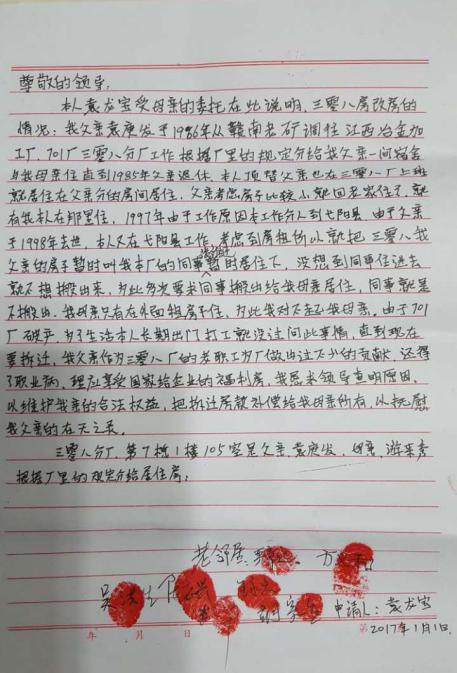 尊敬的领导:
本人袁龙宝受母亲的委托在此说明,三零八房改房的
情况:我父亲袁庚发于1986年从赣南老矿调往江西冶金加
工厂.701厂三零八分厂工作根据厂里的规定分给我父亲一间宿舍
与我母亲住直到1985年父亲退休.本人顶替父亲也在三零八厂上班
就居住在父亲分的房间居住.父亲考虑房子比较小就回老家住了,就
有我本人在那里住,1997年由于工作原因本工作分入到弋阳县.由于父亲
于1998年去世.本人又在弋阳县工作,考虑到房租所以就把三零八我
父亲的房子暂时叫我本厂的同事暂时居住下,没想到同事住进去
就不想搬出来,为此多次要求同事搬出给我母亲居住,同事就是
不搬出.我母亲只有在外面租房子住,为此我对不起我母亲.由于701
厂破产,为了生活本人长期出门打工就没过问此事情,直到现在
要拆迁,我父亲作为三零八厂的老职工为厂做出过不少的贡献,还得
了职业病,理应享受国家给企业的福利房,我恳求领导查明原因.
以维护我亲的合法权益,把拆迁房款补偿给我母亲所有.以抚慰
我父亲的在天之灵.
三零八分厂.第7栋1楼105室是父亲袁庚发,母亲:游
根据厂里的规定分给居住房:
老邻居:
吴
申请人:袁龙宝
年 月 日 第
2017年1月1日.